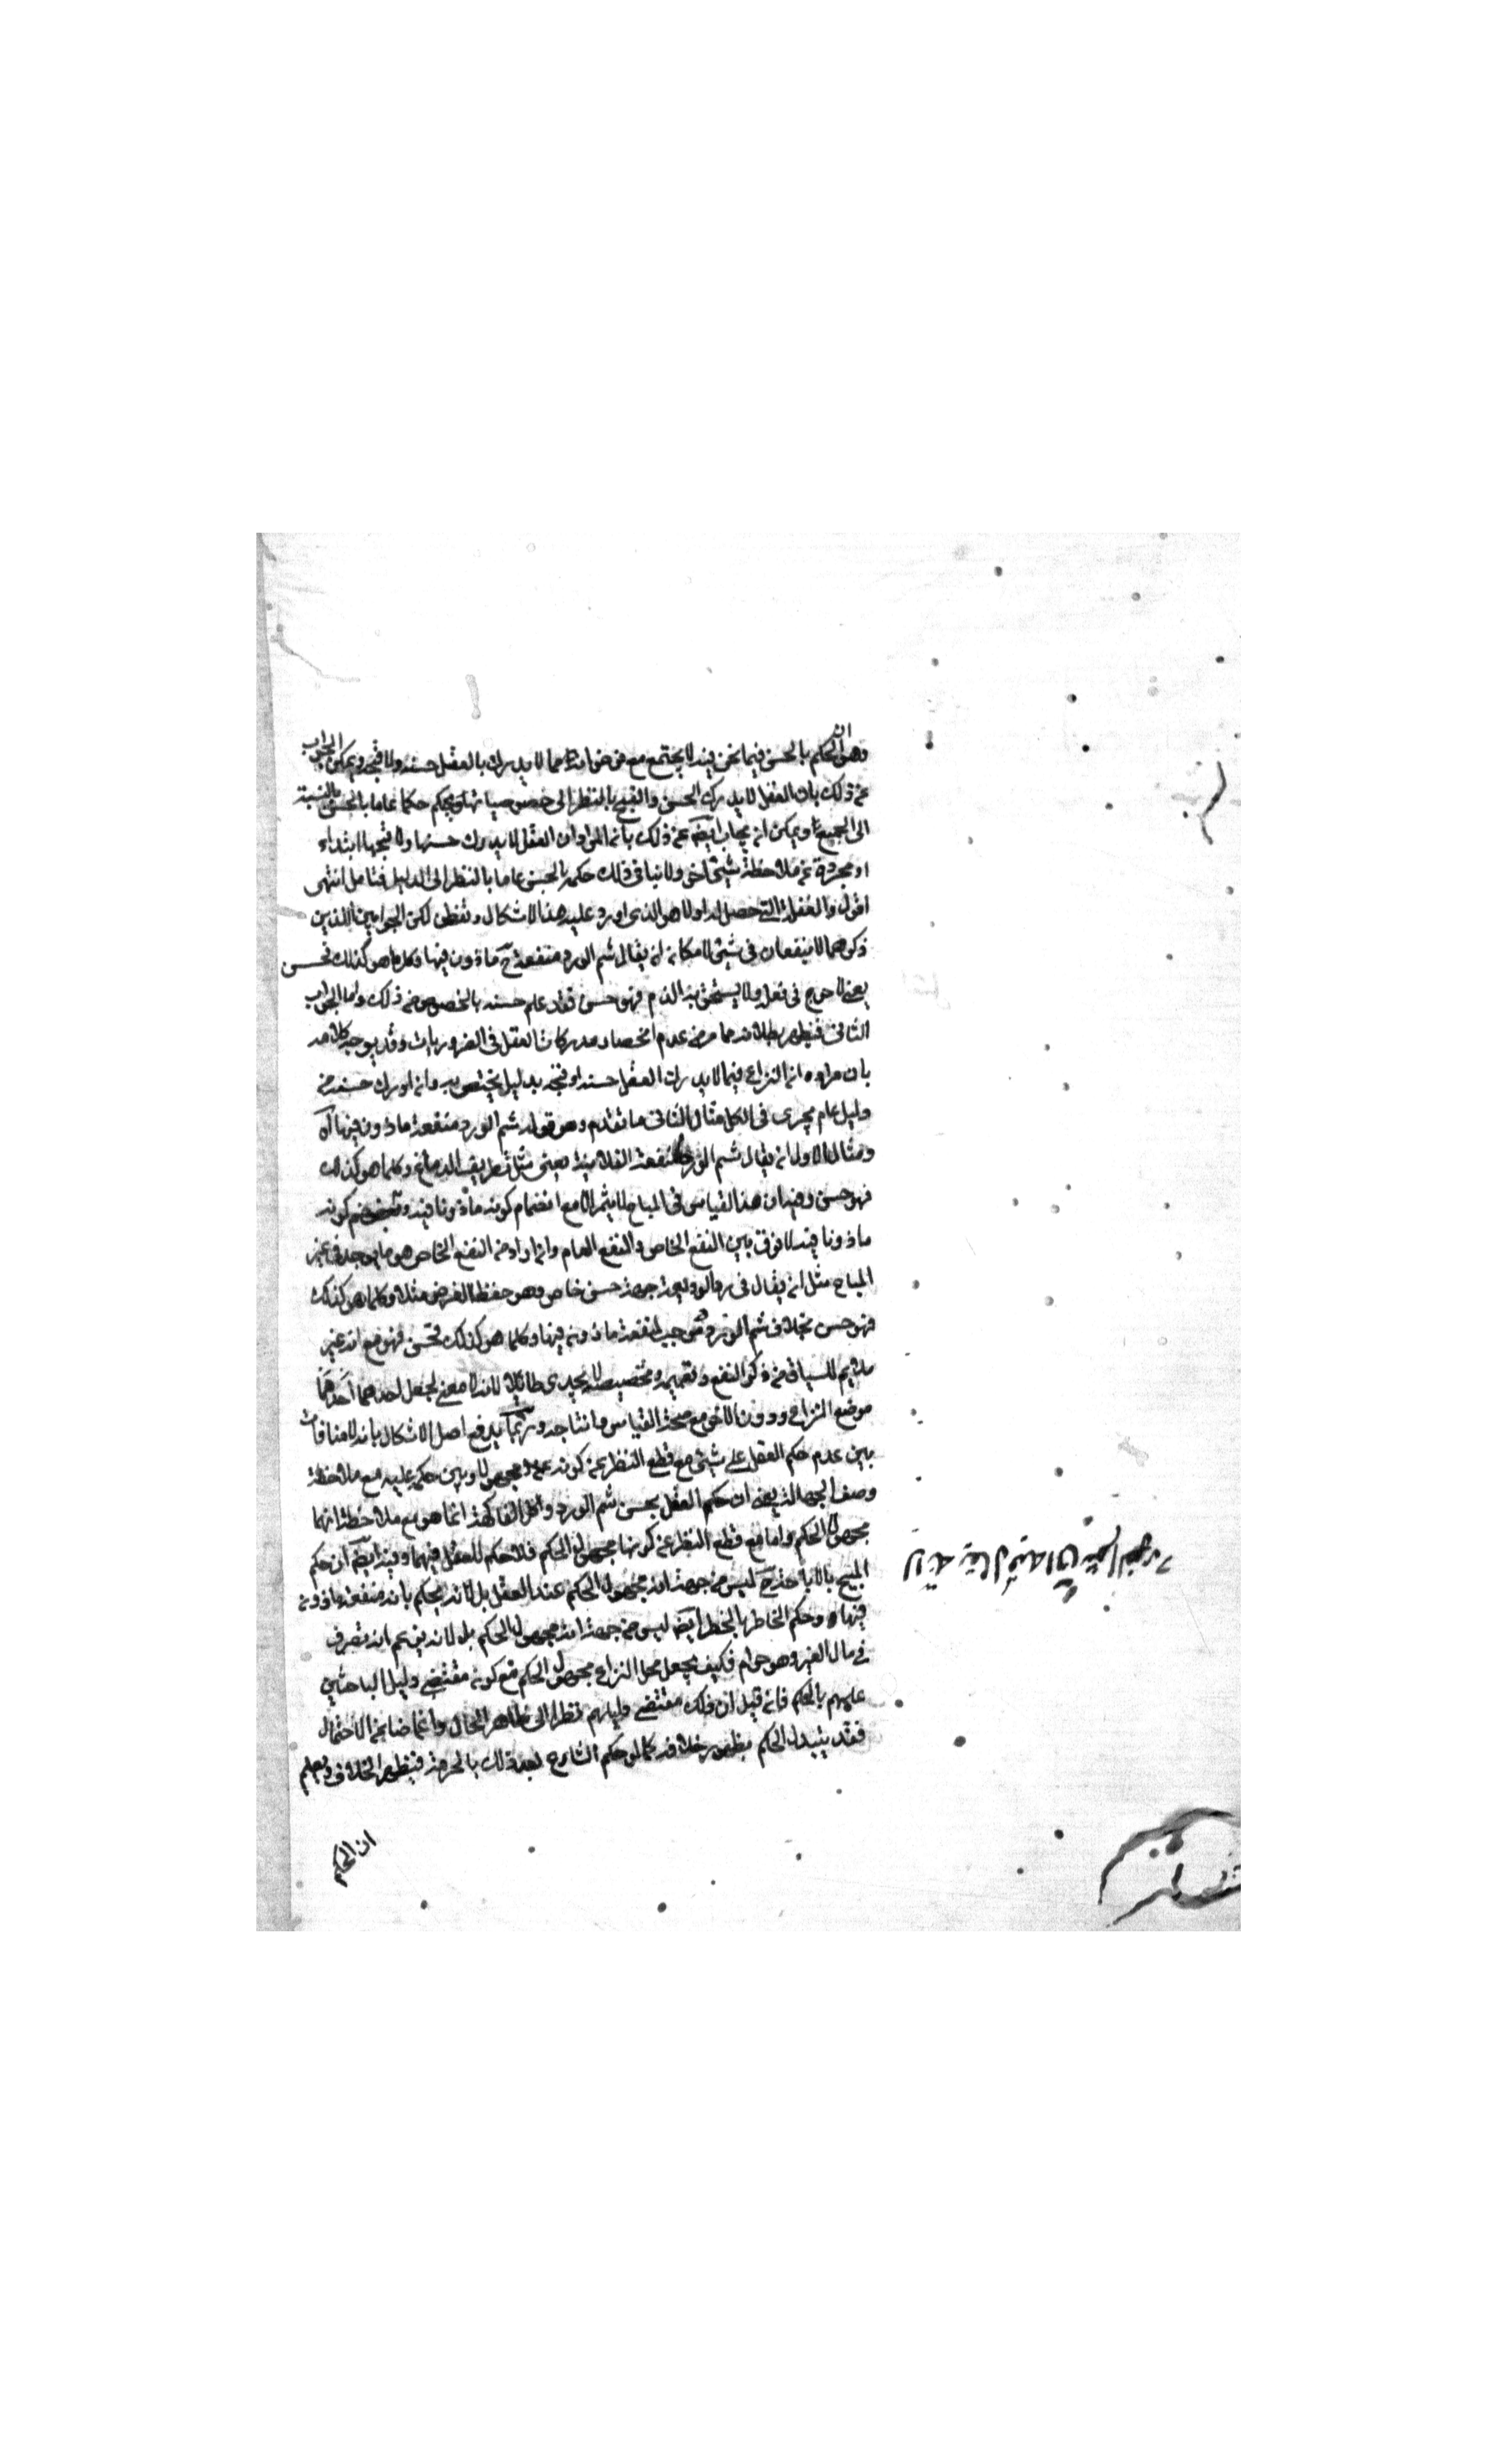 ان
وهو الحكم بالحسن فيما نحن فيه لا يجتمع مع فرض انه مما لا يدرك بالعقل حسنه ولا قبحه ويمكن الجواب
عن ذلك بان العقل لا يدرك الحسن والقبح بالنظر الى خصوصياتها ويحكم حكما عاما بالحسن بالنسبة
الى الجميع ويمكن ان يجاب ايضا عن ذلك بان المراد ان العقل لا يدرك حسنها ولا قبحها ابتداء
او مجردة عن ملاحظة شيئ اخر ولا ينافي ذلك حكمه بالحسن عاما بالنظر الى الدليل فتامل انتهى
اقول والغفلة التي حصل له اولا هو الذي اورد عليه هذا الاشكال وتفطن لكن الجوابين اللذين
ذكرهما لا ينفعان في شيئ لامكان ان يقال شم الورد منفعة ح ماذون فيها وكلما هو كذلك فحسن
يعني لا حرج في فعله ولا يستحق به الذم فهو حسن فقد علم حسنه بالخصوص من ذلك واما الجواب
الثاني فيظهر بطلانه مما مر من عدم انحصار مدركات العقل في الضروريات وقد يوجه كلامه
بان مراده ان النزاع فيما لا يدرك العقل حسنه او قبحه بدليل يختص به وان ادرك حسنه من
دليل عام يجري في الكل مثال الثاني ما تقدم وهو قوله شم الورد منفعة ماذون فيها آه
ومثال الاول ان يقال شم الورد منفعة الفلانية يعني مثل تطريب الدماغ وكلما هو كذلك
فهو حسن وفيه ان هذا القياس في المباح لا يتم الا مع انضمام كونه ماذونا فيه وبعد ضم كونه
ماذونا فيه لا فرق بين النفع الخاص والنفع العام وان اراد من النفع الخاص هو ما يوجد في غير
المباح مثل ان يقال في رد الوديعة جهة حسن خاص وهو حفظ الغرض مثلا وكلما هو كذلك
فهو حسن بخلاف شم الورد فهو جيب لمنفعة ماذون فيها وكلما هو كذلك فحسن فهو مع انه غير
ملايم للسياق من ذكر النفع وتعميمه وتخصيصه لا يجدي طائلا لانه لا معنى لجعل احدهما
موضع النزاع دون الاخر مع صحة القياس وانتاجه وربما يدفع اصل الاشكال بانه لا منافات
بين عدم حكم العقل على شيئ مع قطع النظر عن كونه مجهولا وبين حكمه عليه مع ملاحظة
وصف الجهالة يعني ان حكم العقل بحسن شم الورد واكل الفاكهة انما هو مع ملاحظة انهما
مجهول الحكم واما مع قطع النظر عن كونها مجهول الحكم فلا حكم للعقل فيهما وفيه ايضا ان حكم
المبيح بالاباحة ح ليس من جهة انه مجهول الحكم عند العقل بل لانه يحكم بانه منفعة ماذون
فيها وحكم الخاطر بالخطر ايضا ليس من جهة انه مجهول الحكم بل لانه يزعم انه تصرف
في مال الغير وهو حرام فكيف يجعل محل النزاع مجهول الحكم مع كون مقتضى دليل الباحثين
علمهم بالحكم فان قيل ان ذلك مقتضى دليلهم نظرا الى ظاهر الحال وانما ضايع الاحتمال
فقد يتبدل الحكم بظهور خلافه كما لو حكم الشارع بعد ذلك بالحرمة فيظهر الخلاف ويعلم
ان الحكم